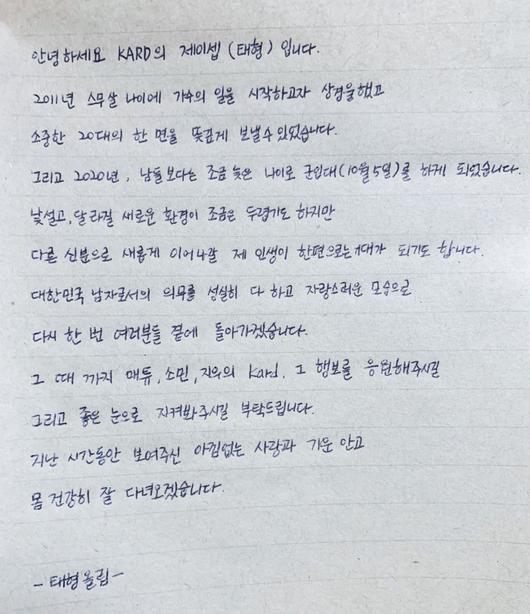 안녕하세요 KARD의 제이셉 (태형) 입니다.
2011년 스무살 나이에 가수의 일을 시작하고자 상경을했고
소중한 20대의 한 면을 뜻깊게 보낼수있었습니다.
그리고 2020년, 남들보다는 조금 늦은 나이로 군입대(10월5일)를 하게 되었습니다.
낯설고, 달라질 새로운 환경이 조금은 두렵기도 하지만
다른 신분으로 새롭게 이어나갈 제 인생이 한편으로는 기대가 되기도 합니다.
대한민국 남자로서의 의무를 성실히 다 하고 자랑스러운 모습으로
다시 한 번 여러분들 곁에 돌아가겠습니다.
그 때 까지 매튜, 소민, 지우의 Kard. 그 행보를 응원해주시길
그리고 좋은 눈으로 지켜봐주시길 부탁드립니다.
지난 시간동안 보여주신 아낌없는 사랑과 기운 안고
몸 건강히 잘 다녀오겠습니다.
- 태형올림 -